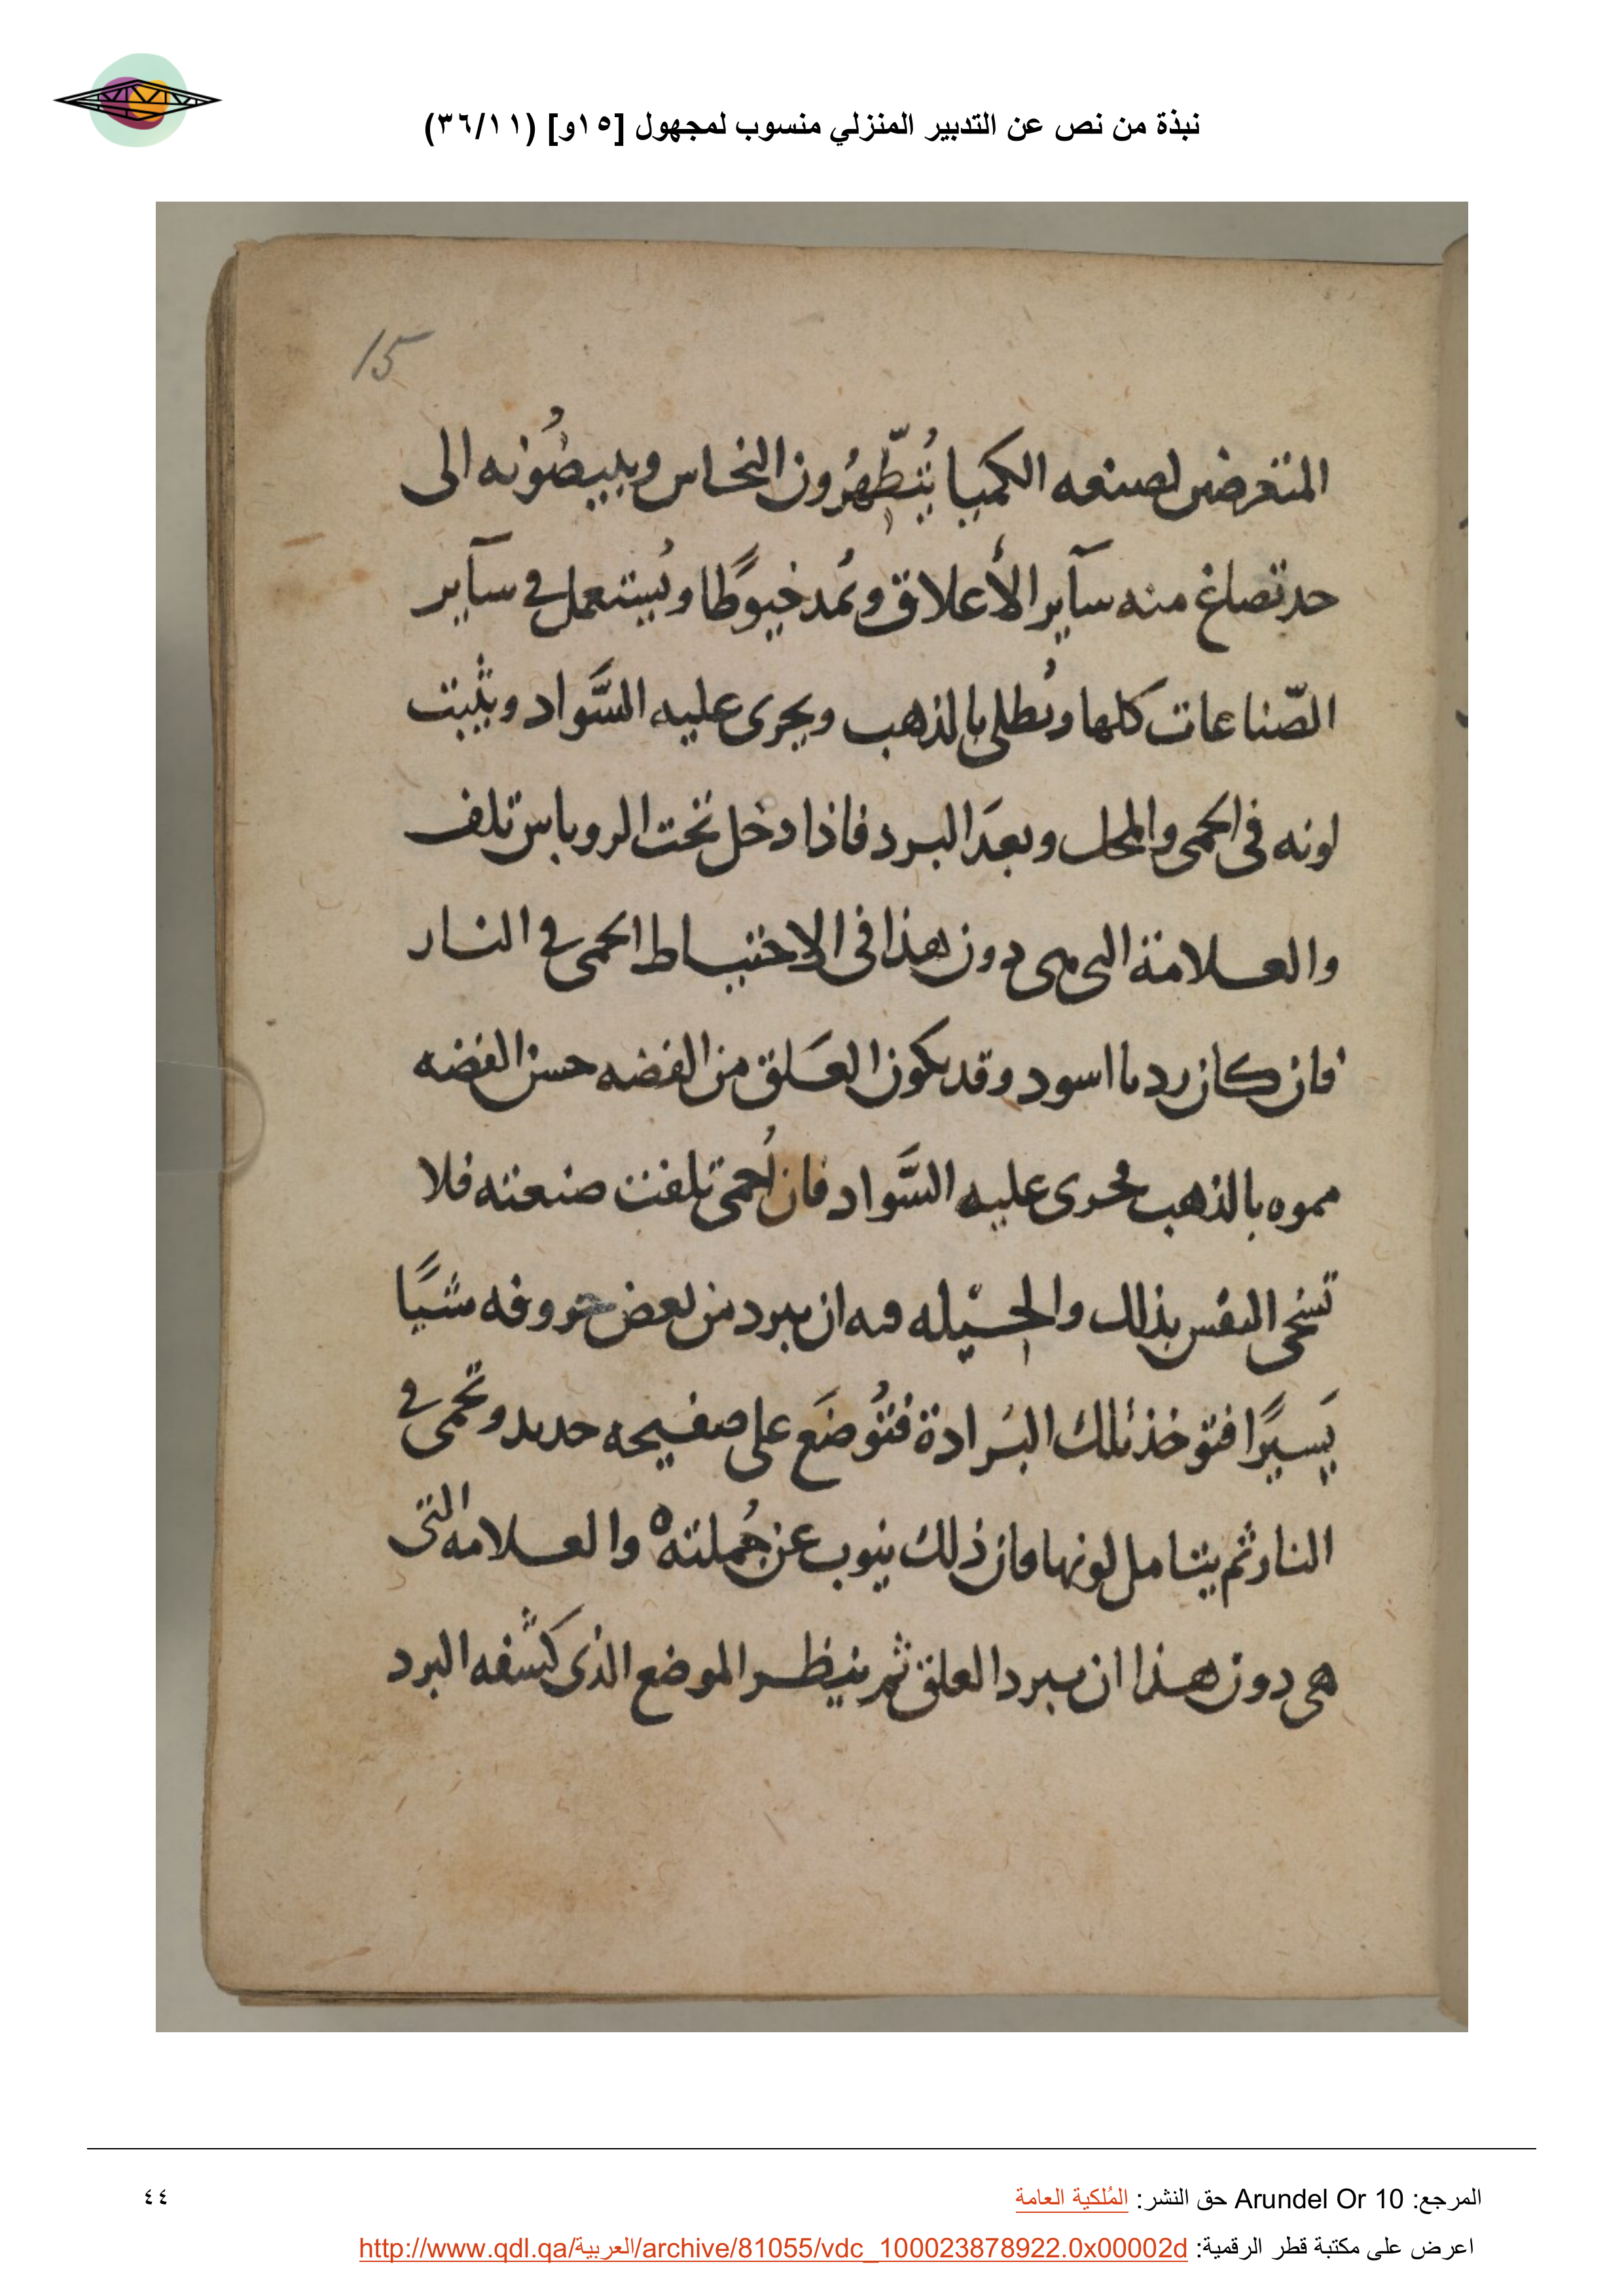 نبذة من نص عن التدبير المنزلي منسوب لمجهول [١٥و] (٣٦/١١)
15
المتعرضين لصنعه الكميا يُطّهرُون النحاس ويبيضُونه الى
حد تصاغ منه سآير الأعلاق ويُمد خيوطًا ويُستعمل في سآير
الصّناعات كلها ويُطلى بالذهب ويجرى عليه السَّواد ويثبت
لونه فى الحمى والمحل وبعدَ البرد فاذا دخل تحت الروباس تلف
والعلامة التى هى دون هذا فى الاحتياط الحمى في النار
فان كان رديا اسود وقد يكون العَلق من الفضه حسن الفضه
مموه بالذهب مجرى عليه السَّواد فان اُحمى تلفت صنعته فلا
تسخى النفس بذلك والحيله فيه ان يبرد من بعض حروفه شيًا
يَسيرًا فتوخذ تلك البُرادة فتُوضَع على صفيحه حديد وتحمى في
النار ثم يتامل لونها فان ذلك ينوب عن جُملته ه والعلامه التى
هى دون هذا ان يبرد العلق ثم ينظر الموضع الذى كشفه البرد
المرجع: Arundel Or 10 حق النشر: المُلكية العامة
٤٤
اعرض على مكتبة قطر الرقمية: http://www.qdl.qa/العربية/archive/81055/vdc_100023878922.0x00002d